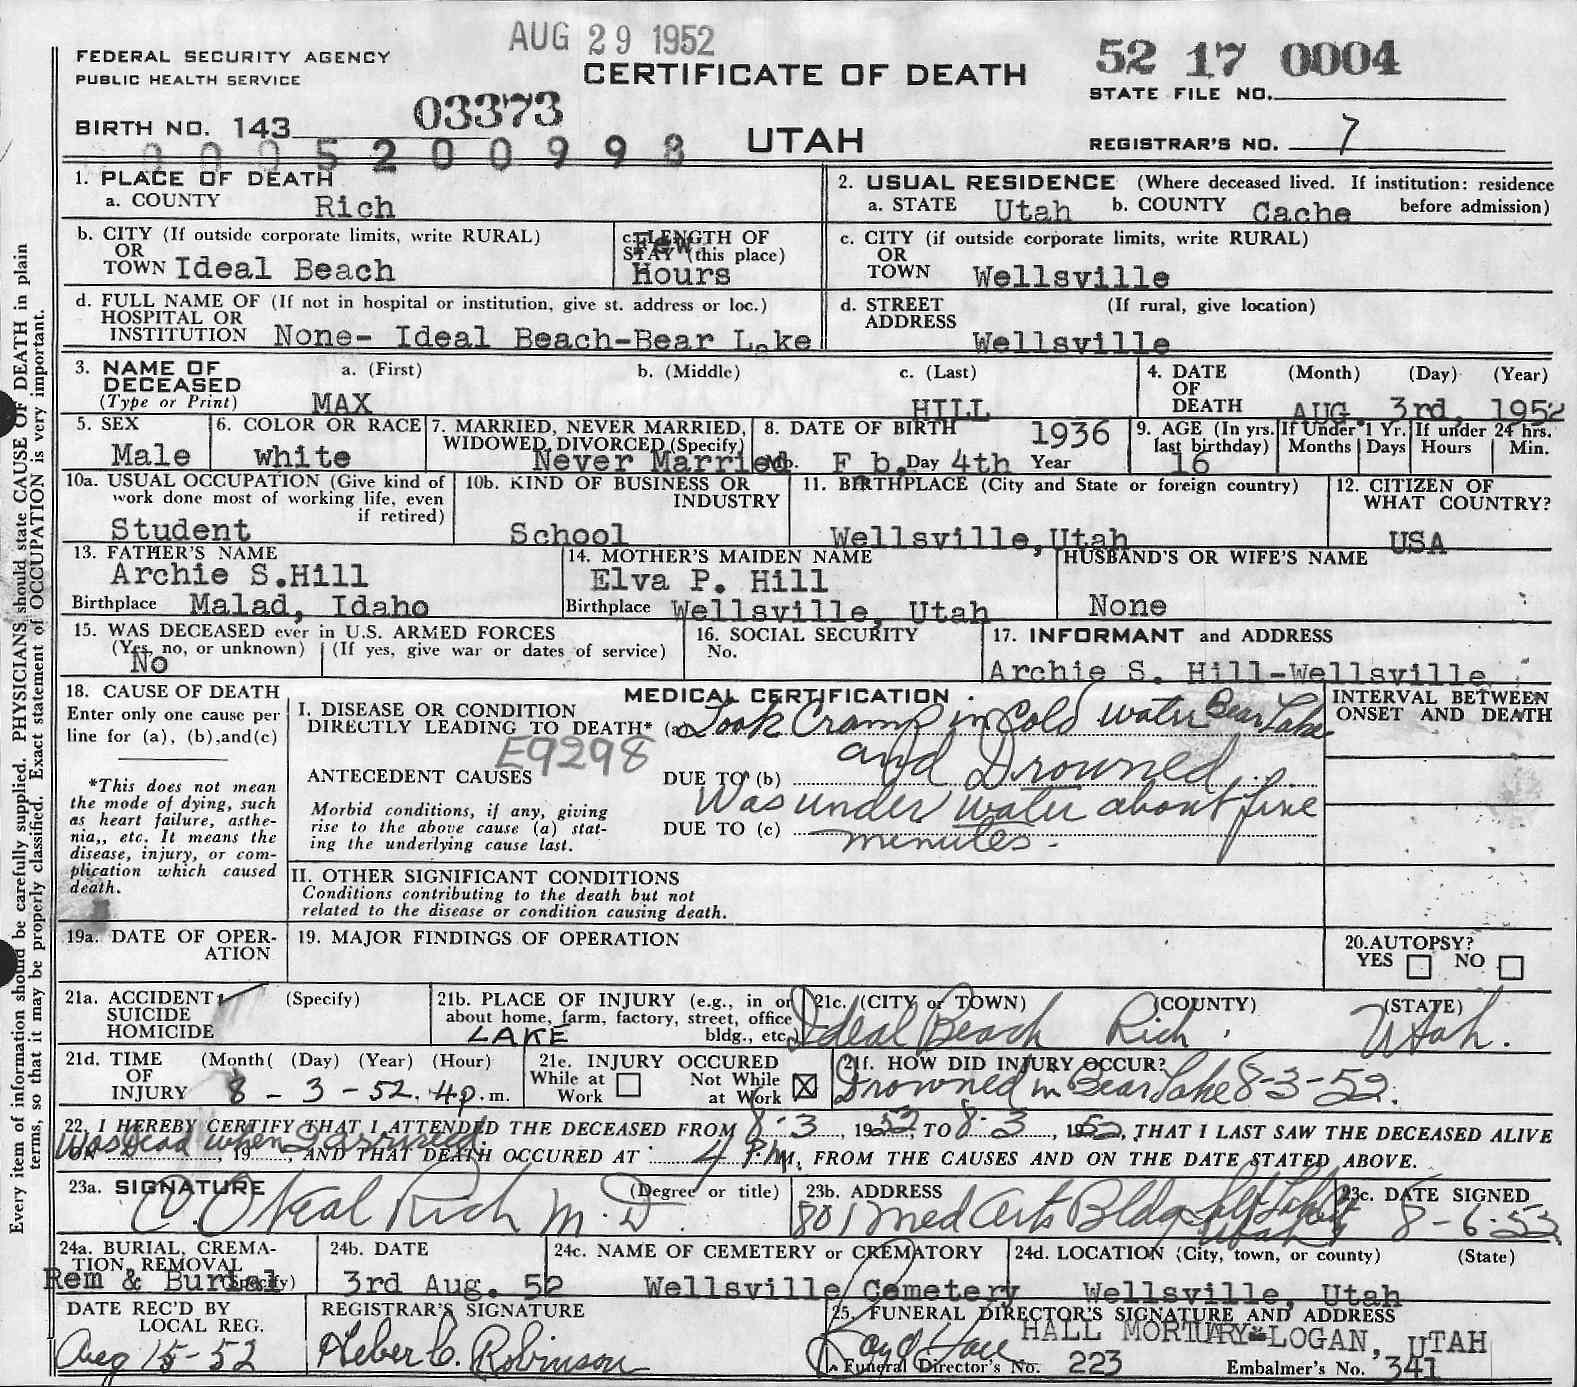 AUG 29 1952
FEDERAL SECURITY AGENCY
PUBLIC HEALTH SERVICE
CERTIFICATE OF DEATH
52 17 0004
STATE FILE NO.
03373
BIRTH NO. 143
UTAH
REGISTRAR'S NO. 7
0 0 0 5 2 0 0 9 9 8
1. PLACE OF DEATH
a. COUNTY Rich
2. USUAL RESIDENCE (Where deceased lived. If institution: residence before admission)
a. STATE Utah b. COUNTY Cache
b. CITY (If outside corporate limits, write RURAL)
OR
TOWN Ideal Beach
c. LENGTH OF
STAY (this place)
Few
Hours
c. CITY (if outside corporate limits, write RURAL)
OR
TOWN Wellsville
d. FULL NAME OF (If not in hospital or institution, give st. address or loc.)
HOSPITAL OR
INSTITUTION None- Ideal Beach-Bear Lake
d. STREET (If rural, give location)
ADDRESS
Wellsville
3. NAME OF
DECEASED
(Type or Print)
a. (First) b. (Middle) c. (Last)
MAX HILL
4. DATE (Month) (Day) (Year)
OF
DEATH AUG. 3rd, 1952
5. SEX
Male
6. COLOR OR RACE
white
7. MARRIED, NEVER MARRIED,
WIDOWED, DIVORCED (Specify)
Never Married
8. DATE OF BIRTH 1936
Mo. F b. Day 4th Year
9. AGE (In yrs.
last birthday)
16
If Under 1 Yr.
Months Days
If under 24 hrs.
Hours Min.
10a. USUAL OCCUPATION (Give kind of
work done most of working life, even
if retired)
Student
10b. KIND OF BUSINESS OR
INDUSTRY
School
11. BIRTHPLACE (City and State or foreign country)
Wellsville,Utah
12. CITIZEN OF
WHAT COUNTRY?
USA
13. FATHER'S NAME
Archie S.Hill
Birthplace Malad, Idaho
14. MOTHER'S MAIDEN NAME
Elva P. Hill
Birthplace Wellsville, Utah
HUSBAND'S OR WIFE'S NAME
None
15. WAS DECEASED ever in U.S. ARMED FORCES
(Yes, no, or unknown) (If yes, give war or dates of service)
No
16. SOCIAL SECURITY
No.
17. INFORMANT and ADDRESS
Archie S. Hill-Wellsville
18. CAUSE OF DEATH
Enter only one cause per
line for (a), (b),and(c)
*This does not mean
the mode of dying, such
as heart failure, asthe-
nia,, etc. It means the
disease, injury, or com-
plication which caused
death.
MEDICAL CERTIFICATION
I. DISEASE OR CONDITION
DIRECTLY LEADING TO DEATH* (a) Took Cramp in Cold water Bear Lake
E9298
and Drowned
ANTECEDENT CAUSES DUE TO (b)
Was under water about five
Morbid conditions, if any, giving
rise to the above cause (a) stat-
ing the underlying cause last.
DUE TO (c) minutes.
INTERVAL BETWEEN
ONSET AND DEATH
II. OTHER SIGNIFICANT CONDITIONS
Conditions contributing to the death but not
related to the disease or condition causing death.
19a. DATE OF OPER-
ATION
19. MAJOR FINDINGS OF OPERATION
20.AUTOPSY?
YES NO
21a. ACCIDENT (Specify)
SUICIDE
HOMICIDE
21b. PLACE OF INJURY (e.g., in or
about home, farm, factory, street, office
bldg., etc.)
LAKE
21c. (CITY or TOWN) (COUNTY) (STATE)
Ideal Beach Rich, Utah.
21d. TIME (Month( (Day) (Year) (Hour)
OF
INJURY 8 - 3 - 52. 4 p.m.
21e. INJURY OCCURED
While at Work Not While at Work
21f. HOW DID INJURY OCCUR?
Drowned in Bear Lake 8-3-52.
22. I HEREBY CERTIFY THAT I ATTENDED THE DECEASED FROM 8-3, 1952, TO 8-3, 1952, THAT I LAST SAW THE DECEASED ALIVE
Was Dead when I arrived.
ON , 19 , AND THAT DEATH OCCURED AT 4 P.M, FROM THE CAUSES AND ON THE DATE STATED ABOVE.
23a. SIGNATURE (Degree or title)
C. O Neal Rich M.D.
23b. ADDRESS
801 Med Arts Bldg Salt Lake City
Utah
23c. DATE SIGNED
8-6-52
24a. BURIAL, CREMA-
TION, REMOVAL
(Specify)
Rem & Burial
24b. DATE
3rd Aug. 52
24c. NAME OF CEMETERY OR CREMATORY
Wellsville Cemetery
24d. LOCATION (City, town, or county) (State)
Wellsville, Utah
DATE REC'D BY
LOCAL REG.
Aug 15-52
REGISTRAR'S SIGNATURE
Heber C. Robinson
25. FUNERAL DIRECTOR'S SIGNATURE AND ADDRESS
HALL MORTUARY-LOGAN, UTAH
Funeral Director's No. 223 Embalmer's No. 341
Every item of information should be carefully supplied. PHYSICIANS should state CAUSE OF DEATH in plain
terms, so that it may be properly classified. Exact statement of OCCUPATION is very important.